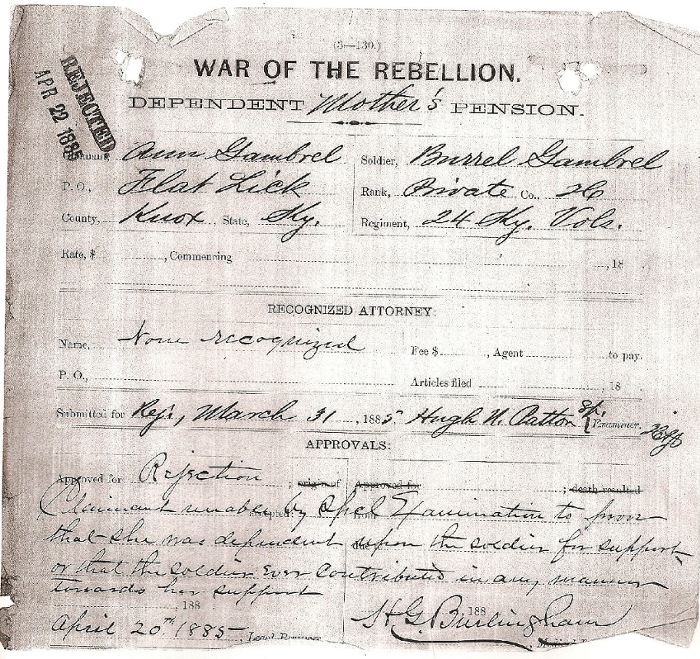 (3—130.)
WAR OF THE REBELLION.
DEPENDENT Mother's PENSION.
REJECTED
APR 22 1885
Claimant, Ann Gambrel
Soldier, Burrel Gambrel
P. O., Flat Lick
Rank, Private Co.,
County, Knox State, Ky.
Regiment, 24 Ky. Vols.
Rate, $ , Commencing , 18
RECOGNIZED ATTORNEY:
Name, None recognized
Fee $ , Agent to pay.
P. O.,
Articles filed , 18
Submitted for Rej., March 31, 1885. Hugh N. Patton Sp. Examiner.
APPROVALS:
Approved for Rejection ; origin of Approved for ; death resulted
Claimant unable by Spcl Examination to prove
that she was dependent upon the soldier for support
or that the soldier ever contributed in any manner
towards her support
, 188
188
April 20th 1885, Legal Reviewer.
H G Burlingham